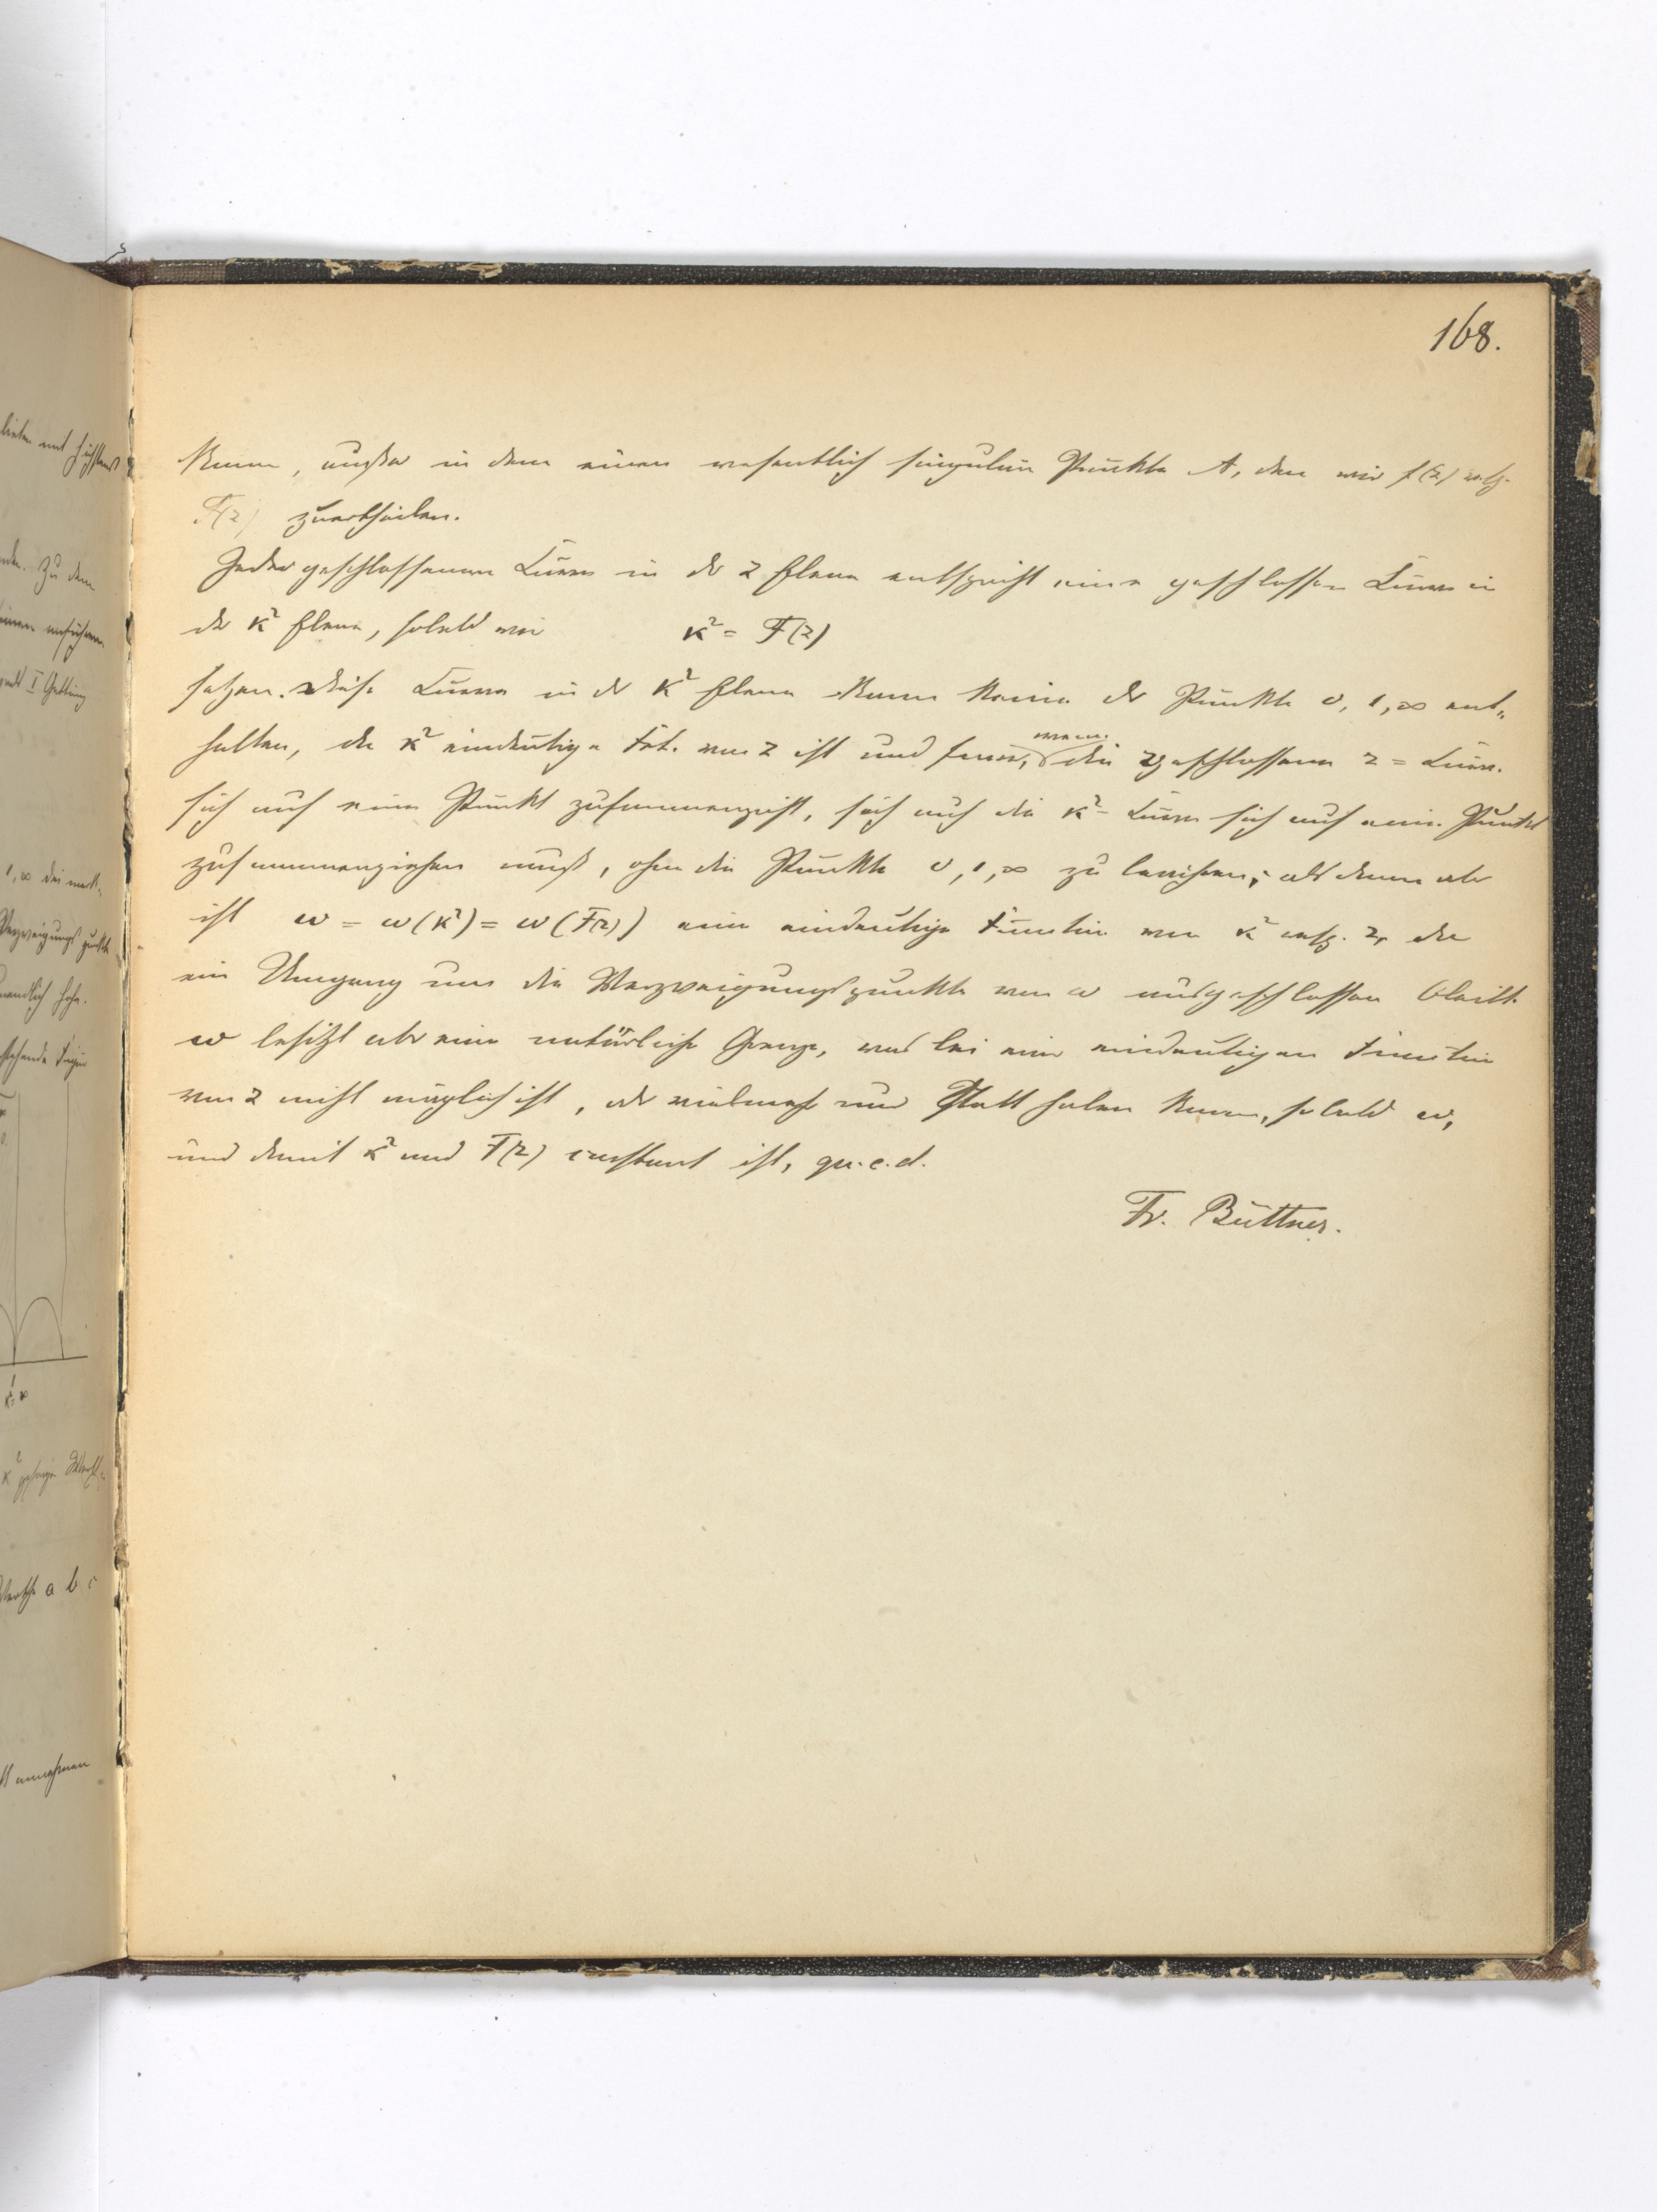 168.
kann, außer in dem einen wesentlich singulären Punkte A, den wir f(z) resp.
F(z) zuertheilen.
Jeder geschlossenen Curve in der z Ebene entspricht eine geschlossene Curve in
der κ² Ebene, sobald wir κ² = F(z)
setzen. Diese Curve in der κ² Ebene kann keine der Punkte 0, 1, ∞ ent„
halten, da κ² eindeutige Fct. von z ist und ferner, wenn die geschlossene z = Curve
sich auf einen Punkt zusammenzieht, sich auch die κ² - Curve sich auf einen Punkt
zusammenziehen muß, ohne die Punkte 0, 1, ∞ zu berühren; alsdann aber
ist ω = ω(κ²) = ω(F(z)) eine eindeutige Function von κ² resp. z, da
ein Umgang um die Verzweigungspunkte von ω ausgeschlossen bleibt.
ω besitzt aber eine natürliche Grenze, was bei einer eindeutigen Function
von z nicht möglich ist, oder vielmehr nur Statt haben kann, sobald ω,
und damit κ² und F(z) constant ist, qu. e. d.
Fr. Büttner.